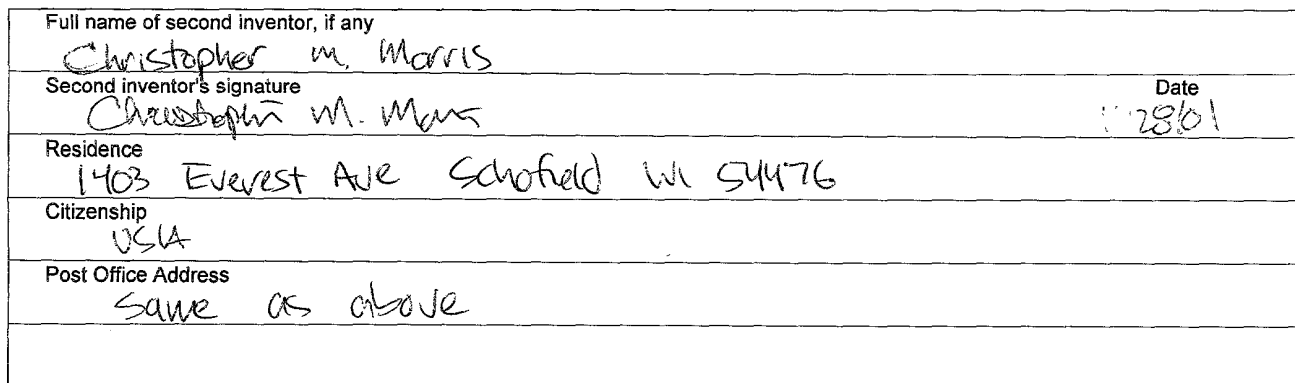 Full name of second inventor, if any
Christopher M. Morris
Second inventor's signature Date
Christopher M. 28/01
Residence
1403 Everest Ave Schofield WI 54476
Citizenship
USA
Post Office Address
Same as above